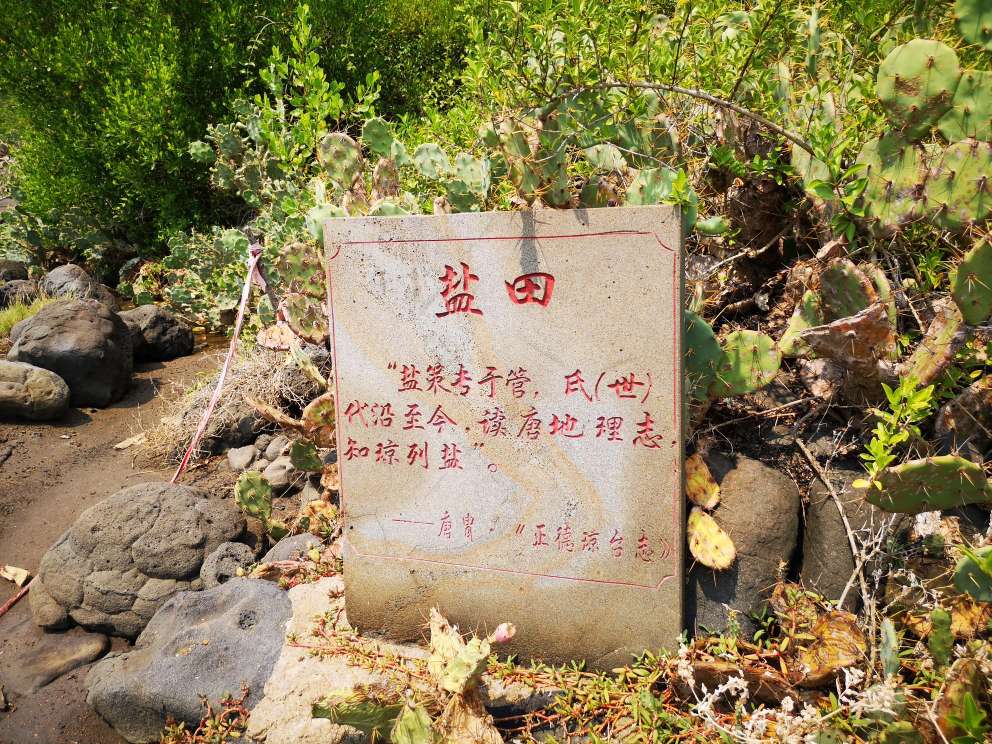 盐田
“盐策考于管，氏(世)
代沿至今．读唐地理志，
知琼列盐”。
——唐胄 《正德琼台志》